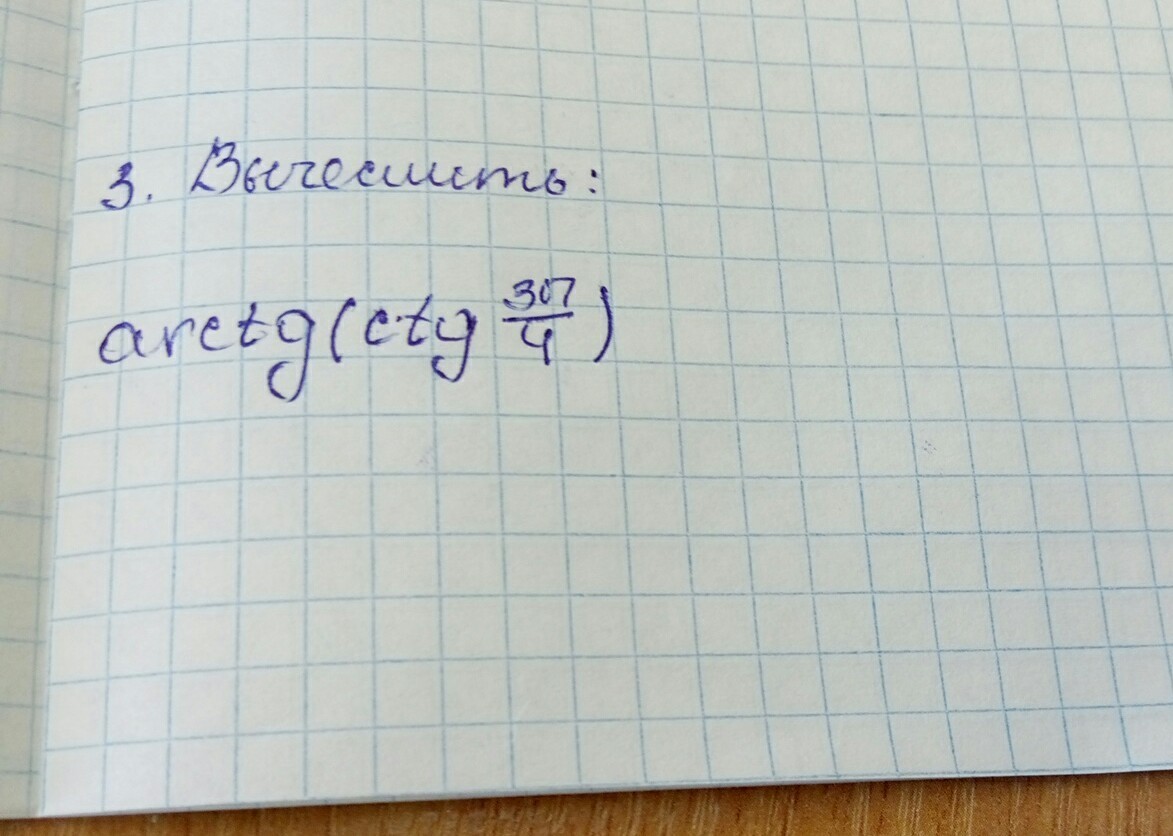 3. Вычеслить:
arctg(ctg 30π/4)